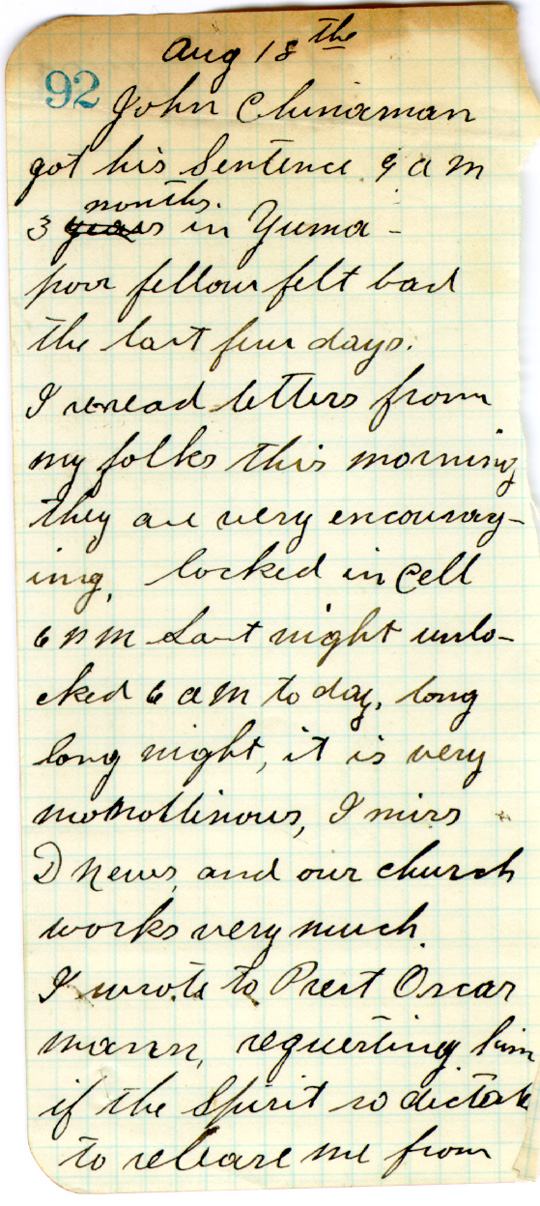 Aug 18th
92 John Chinaman
got his Sentence 9 a m
months.
3 years in Yuma -
poor fellow felt bad
the last few days.
I reread letters from
my folks this morning
they are very encourag-
ing, locked in Cell
6 P M Last night unlo-
cked 6 a M to day, long
long night, it is very
monottinous, I miss
D News, and our church
works very much.
I wrote to Prest Oscar
Mann, requesting him
if the Spirit so dictate
to release me from